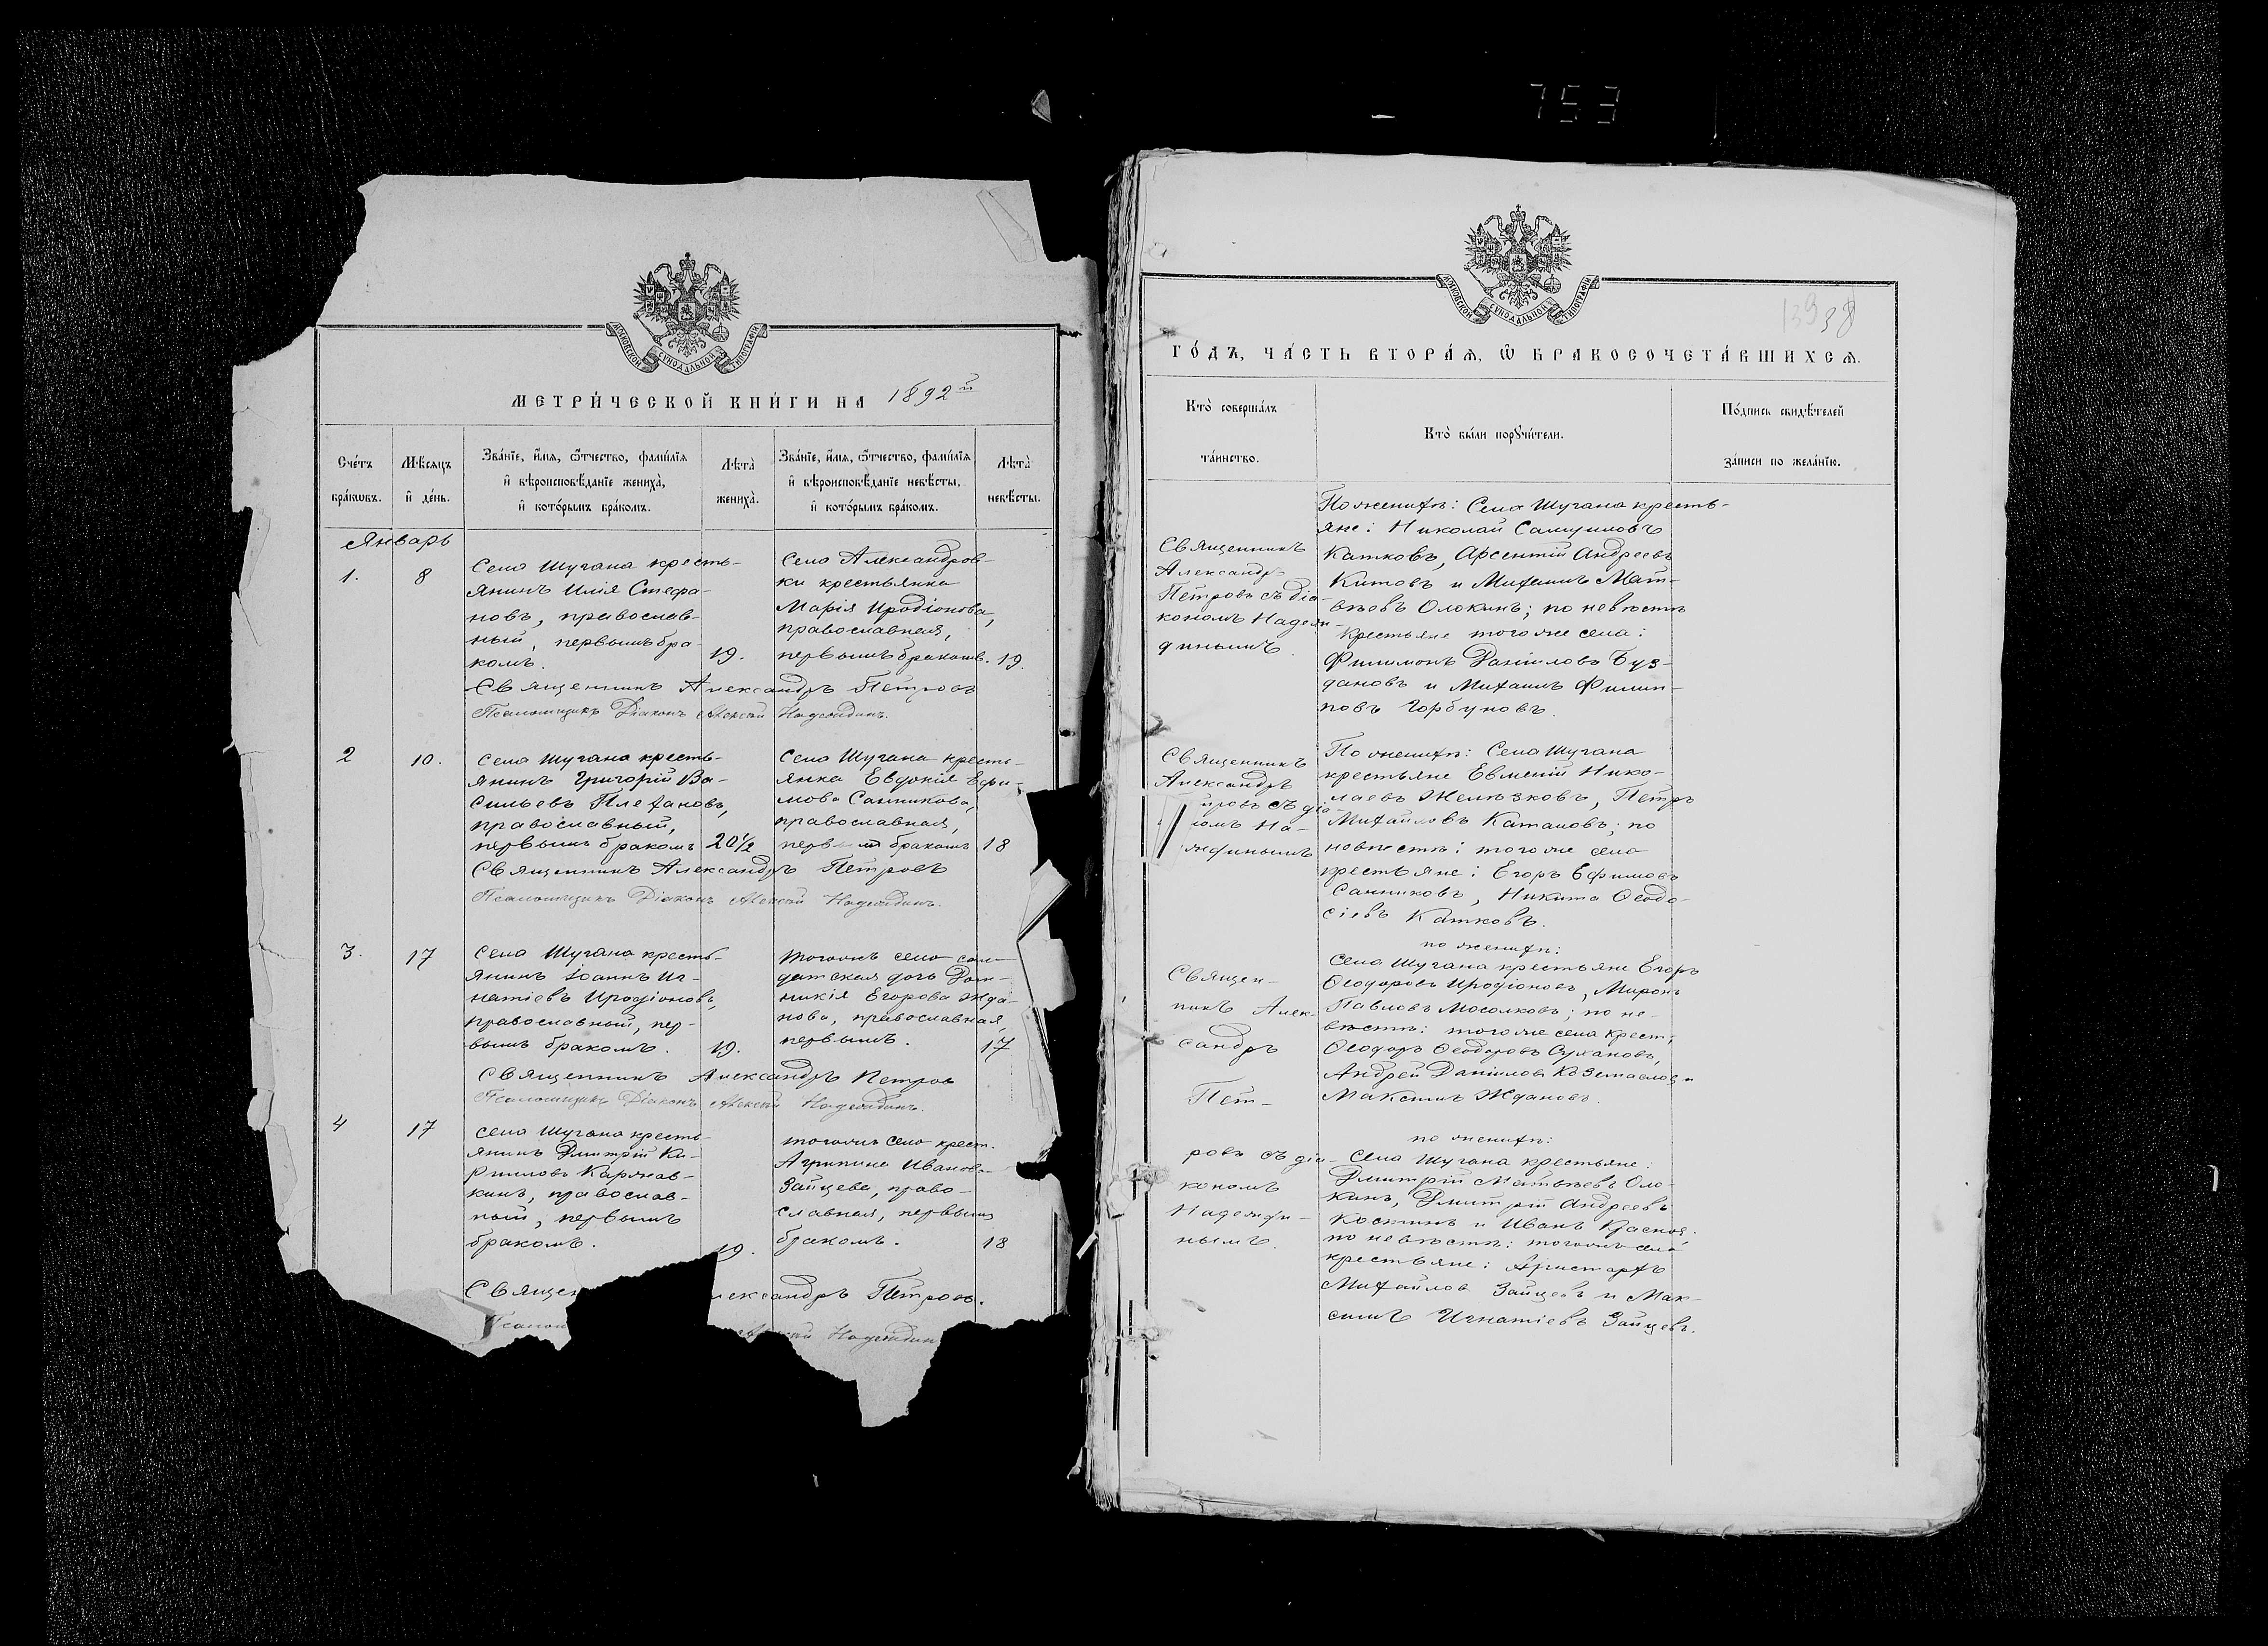 753
МОСКОВСКОЙ СѴНОДАЛЬНОЙ ТИПОГРАФІИ
МЕТРИ́ЧЕСКОЙ КНИ́ГИ НА 1892й
Сче́тъ бра́кωвъ.
Мѣ́сяцъ и҆ де́нь.
Зва́нїе, и҆́мѧ, ѻ҆́тчество, фами́лїѧ
и҆ вѣроисповѣ́данїе жениха̀,
и҆ кото́рымъ бра́комъ.
Лѣта̀ жениха̀.
Зва́нїе, и҆́мѧ, ѻ҆́тчество, фами́лїѧ
и҆ вѣроисповѣ́данїе невѣ́сты,
и҆ кото́рымъ бра́комъ.
Лѣта̀ невѣ́сты.
Январь
1.
8
Села Шугана кресть-
янинъ Илія Стефа-
новъ, православ-
ный, первымъ бра-
комъ.
19.
Села Александров-
ки крестьянка
Марія Иродіонова,
православная,
первымъ бракомъ.
19.
Священникъ Александръ Петровъ
Псаломщикъ Діаконъ Алексій Надеждинъ.
2
10.
Села Шугана кресть-
янинъ Григорій Ва-
сильевъ Плехановъ,
православный,
первымъ бракомъ
20½
Села Шугана кресть-
янка Евдокія Ефи-
мова Санникова,
православная,
первымъ бракомъ
18
Священникъ Александръ Петровъ
Псаломщикъ Діаконъ Алексій Надеждинъ.
3.
17
Села Шугана кресть-
янинъ Іоаннъ Иг-
натіевъ Иродіоновъ,
православный, пер-
вымъ бракомъ.
19.
тогожъ села сол-
датская дочь Дом-
никія Егорова Жда-
нова, православная,
первымъ.
17
Священникъ Александръ Петров
Псаломщикъ Діаконъ Алексій Надеждинъ.
4
17
Села Шугана кресть-
янинъ Дмитрій Ки-
рилловъ Каржав-
кинъ, православ-
ный, первымъ
бракомъ.
19.
тогожъ села крест.
Агрипина Иванова
Зайцева, право-
славная, первымъ
бракомъ.
18
Священ лександръ Петровъ.
Псалом Алексій Надеждин
МОСКОВСКОЙ СѴНОДАЛЬНОЙ ТИПОГРАФІИ
38
ГО́ДЪ, ЧА́СТЬ ВТОРА́Ѧ, Ѽ БРАКОСОЧЕТА́ВШИХСѦ.
Кто̀ соверша́лъ
та́инство.
Кто̀ бы́ли порꙋчи́тели.
По́дпись свидѣ́телей
за́писи по жела́нїю.
Священникъ
Александръ
Петровъ съ діа-
кономъ Надеж-
динымъ.
По женихѣ: Села Шугана кресть-
яне: Николай Самуиловъ
Катковъ, Арсентій Андреевъ
Китовъ и Михаилъ Мат-
вѣевъ Олокинъ; по невѣстѣ
крестьяне тогоже села:
Филимонъ Даніиловъ Буз-
дановъ и Михаилъ Филип-
повъ Горбуновъ.
Священникъ
Александръ
тровъ съ діа-
номъ На-
ждинымъ
По женихѣ: Села Шугана
крестьяне Евмений Нико-
лаевъ Желѣзковъ, Петръ
Михайловъ Катановъ; по
невѣстѣ: тогоже села
крестьяне: Егоръ Ефимовъ
Санниковъ, Никита Ѳеодо-
сіевъ Катковъ.
Священ-
никъ Алек-
сандръ
Пет-
по женихѣ:
Села Шугана крестьяне Егоръ
Ѳеодоровъ Иродіоновъ, Миронъ
Павловъ Мосолковъ; по не-
вѣстѣ: тогоже села крест:
Ѳеодоръ Ѳеодоровъ Сухановъ,
Андрей Даніилов и
Максимъ Ждановъ.
ровъ съ діа-
кономъ
Надежди-
нымъ.
по женихѣ:
Села Шугана крестьяне:
Дмитрій Матвѣевъ Оло-
кинъ, Дмитрій Андреевъ
Костинъ и Иванъ
по невѣстѣ: тогожъ села
крестьяне: Аристархъ
Михайлов Зайцевъ и Мак-
симъ Игнатіевъ Зайцевъ.